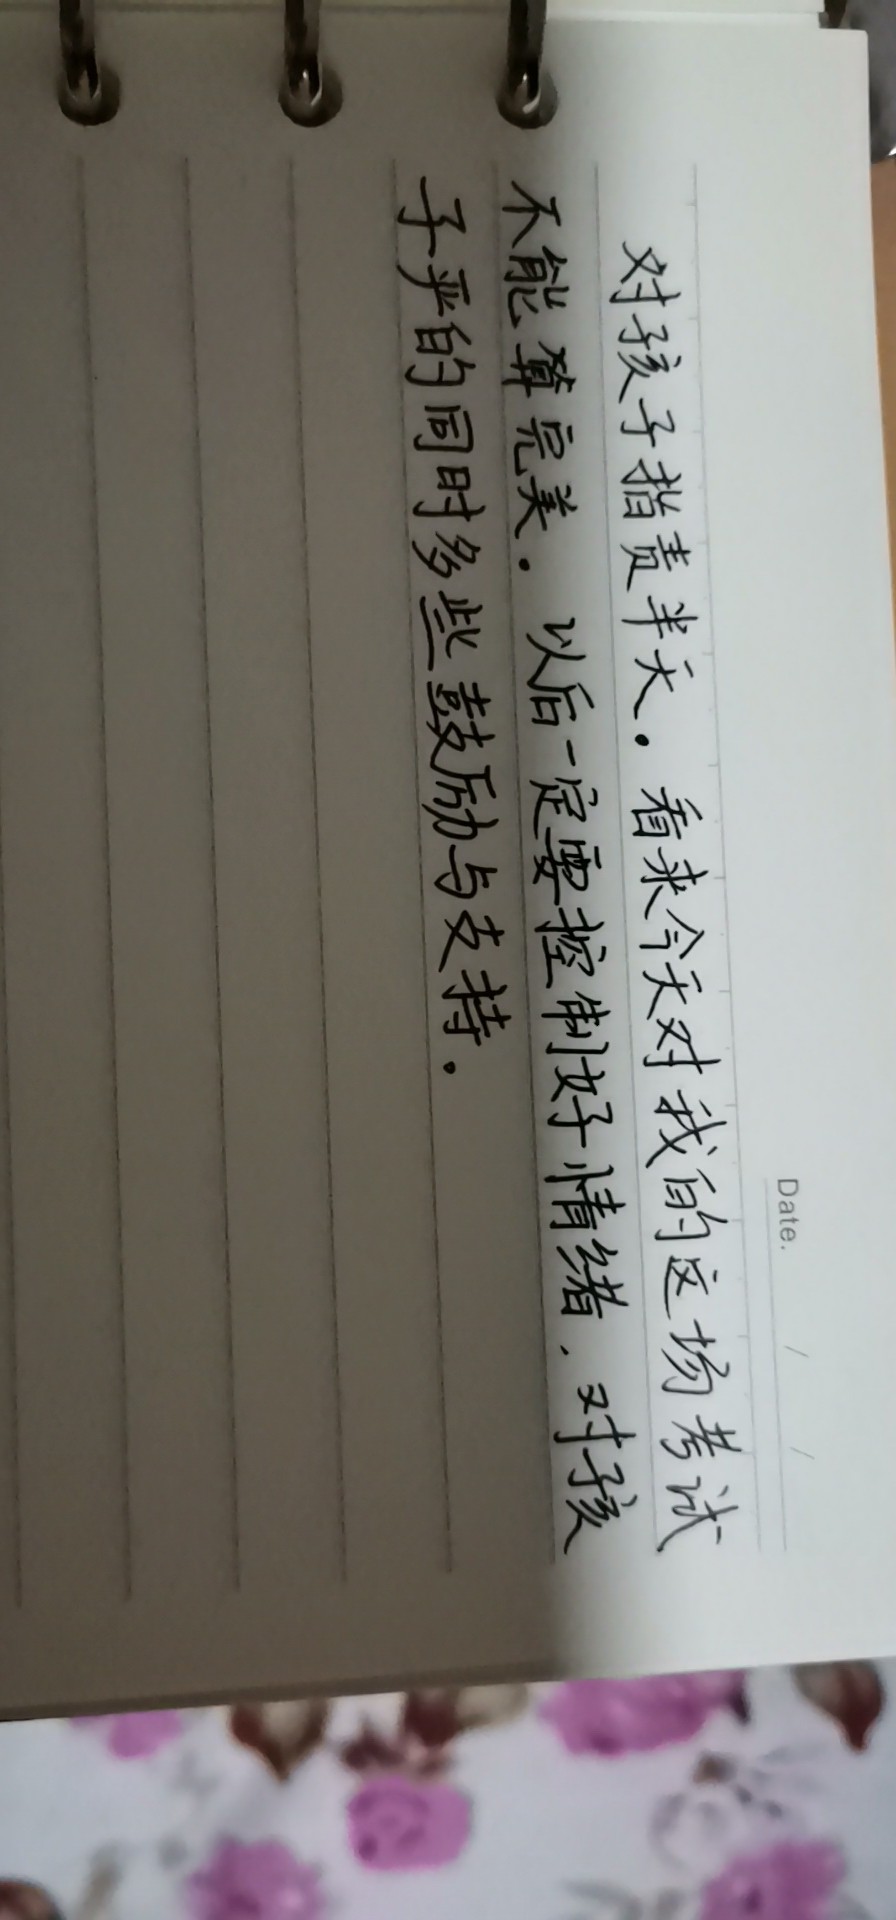 Date. / /
对孩子指责半天。看来今天对我的这场考试
不能算完美。以后一定要控制好情绪、对孩
子严的同时多些鼓励与支持。